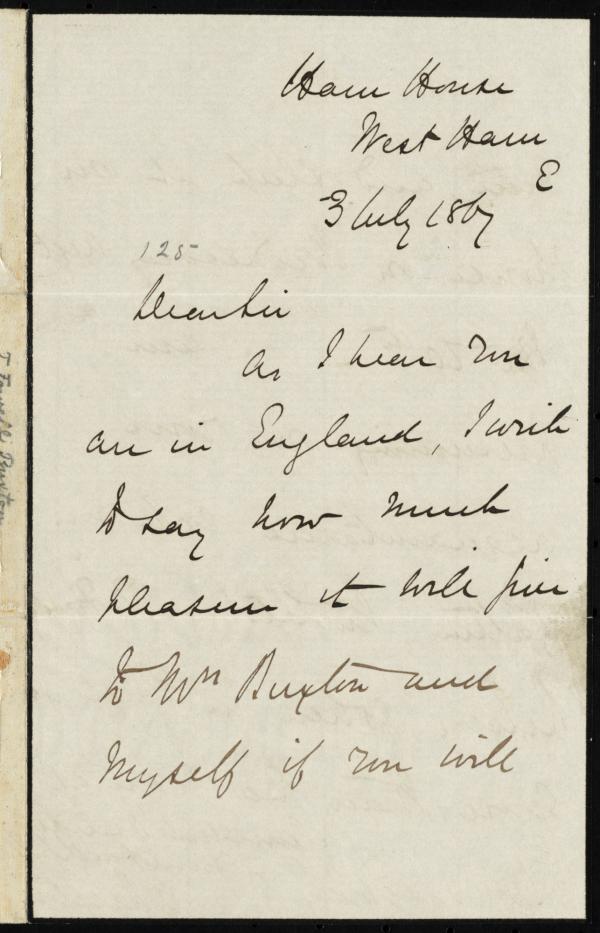 Ham House
West Ham
E
3 July 1867
125
Dear Sir
As I hear you
are in England, I write
to say how much
pleasure it will give
to Mrs Buxton and
myself if you will
T Fowell Buxton